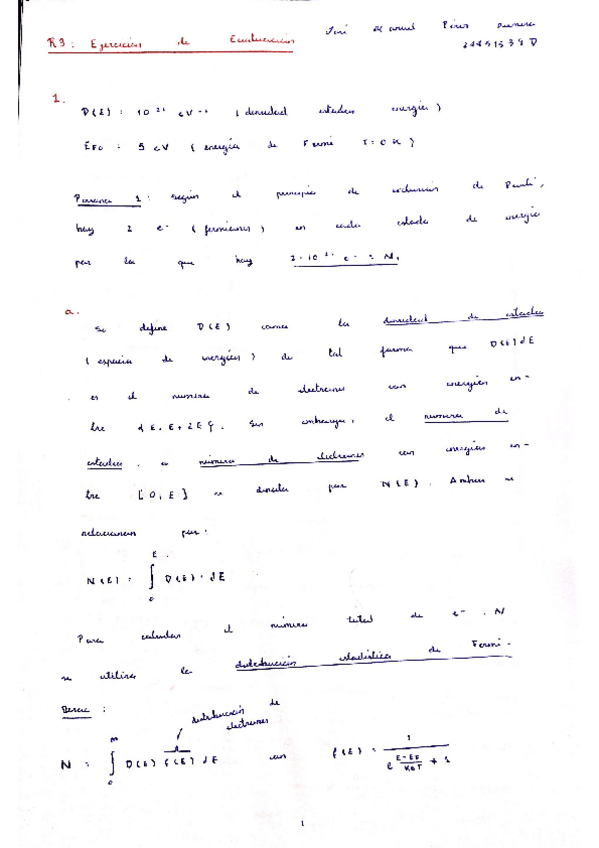 R3: Ejercicios de Evaluación
José Manuel Pérez
1.
D(E) : 10²¹ eV⁻¹ (densidad estados energía)
EF0 : 5 eV (energía de Fermi T=0K)
1: según el principio de exclusión de Pauli,
hay 2 e⁻ (fermiones) en cada estado de energía
por lo que hay 2·10²¹ e⁻ = N.
a.
Se define D(E) como la densidad de estados
(espacio de energías) de tal forma que D(E)dE
es el número de electrones con energías en-
tre {E, E+dE}. Sin embargo, el número de
estados o número de electrones con energías en-
tre [0, E] se denota por N(E). Ambas se
relacionan por:
N(E) = ∫₀ᴱ D(E)·dE
Para calcular el número total de e⁻, N
se utiliza la distribución estadística de Fermi-
Dirac :
distribución de
electrones
N = ∫₀^∞ D(E) f(E) dE con f(E) = 1 / (e^((E-EF)/(KBT)) + 1)
1